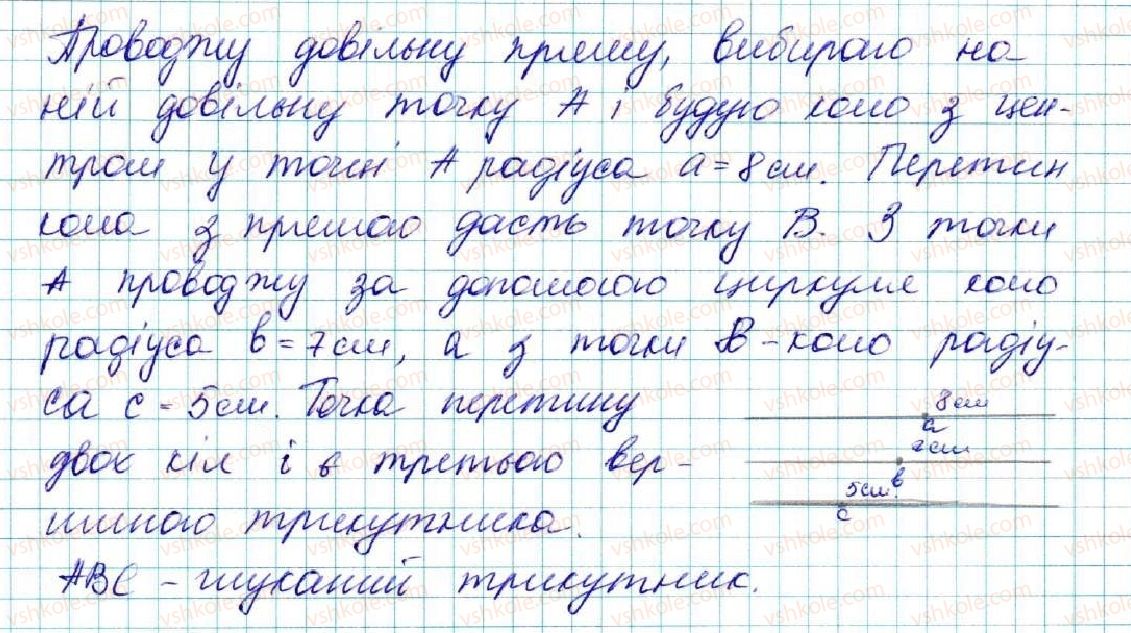 Проводжу довільну пряму, вибираю на
ній довільну точку А і будую коло з цен-
тром у точці А радіуса a = 8 см. Перетин
кола з прямою дасть точку В. З точки
А проводжу за допомогою циркуля коло
радіуса b = 7 см, а з точки В - коло радіу-
са c = 5 см. Точка перетину
двох кіл і є третьою вер-
шиною трикутника.
ABC - шуканий трикутник.
8 см
a
7 см
b
5 см
c
vshkole.com